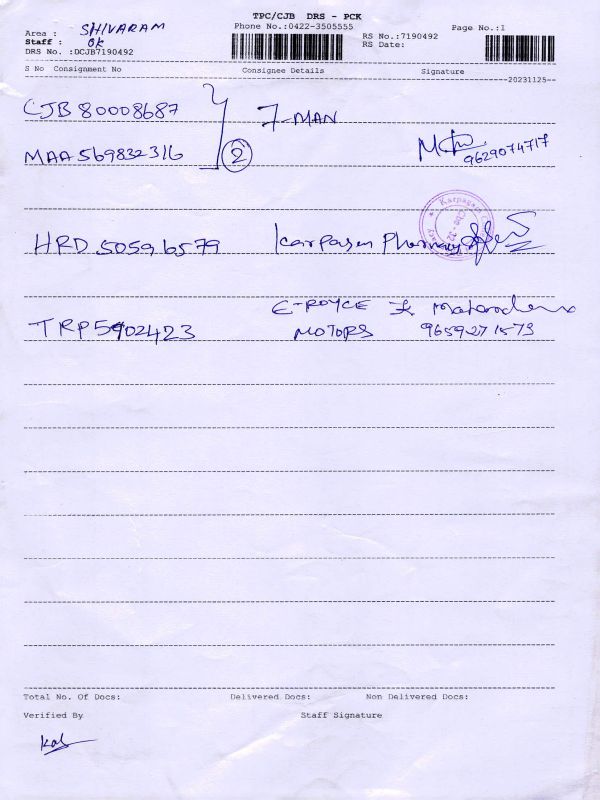 TPC/CJB DRS - PCK
Area : SHIVARAM
Phone No.:0422-3505555
Page No.:1
Staff : OK
RS No.:7190492
DRS No. :DCJB7190492
RS Date:
S No Consignment No Consignee Details Signature
20231125
CJB 80008687
7-MAN
MAA 569832316
2
9629074717
HRD 50596579 Pharmacy
E-ROYCE
TRP5902423 MOTORS 9659271573
Total No. Of Docs: Delivered Docs: Non Delivered Docs:
Verified By Staff Signature